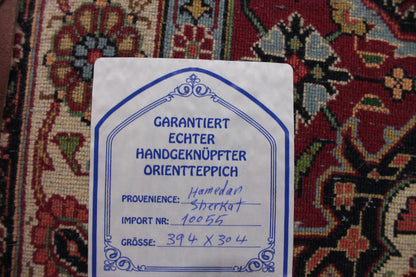 GARANTIERT
ECHTER
HANDGEKNÜPFTER
ORIENTTEPPICH
PROVENIENCE: Hamedan
Sherkat
IMPORT NR: 10055
GRÖSSE: 394 X 304